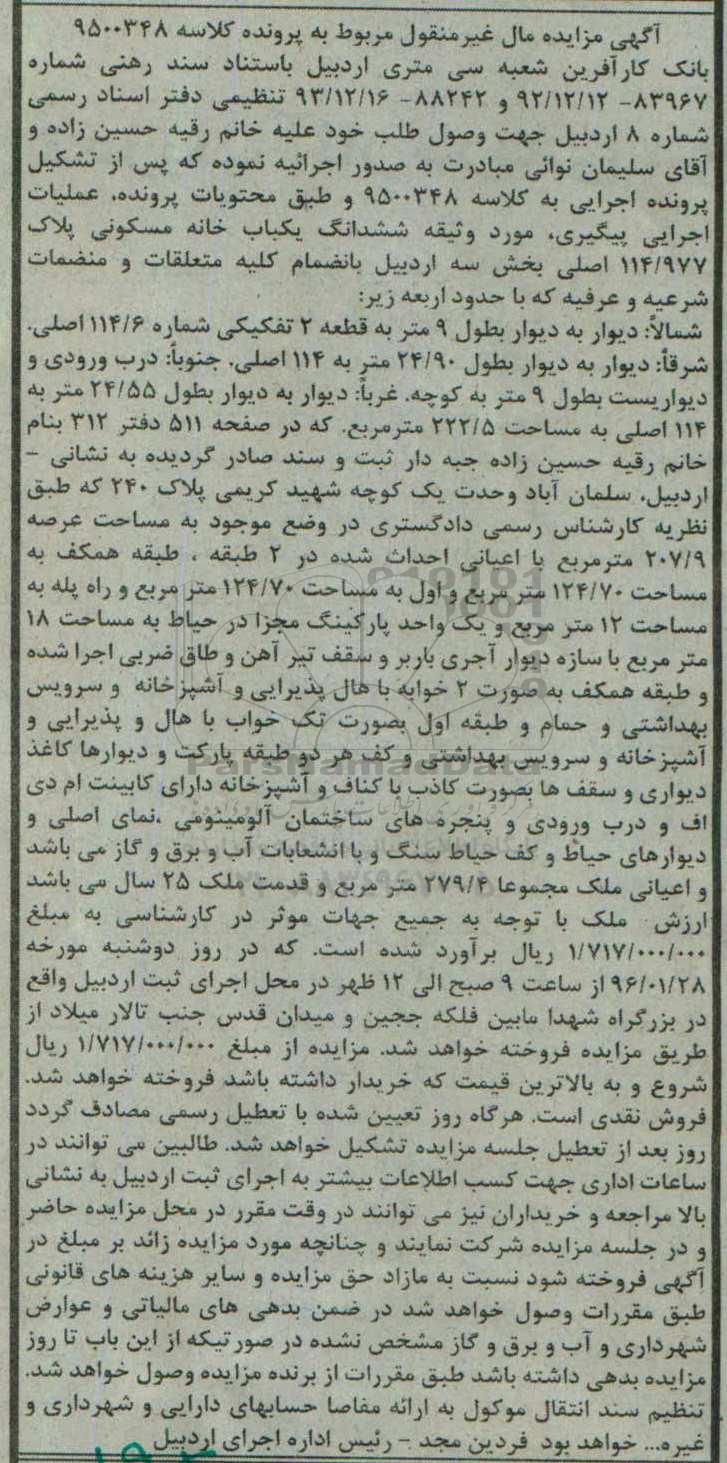 آگهی مزایده مال غیرمنقول مربوط به پرونده کلاسه ۹۵۰۰۳۴۸
بانک کارآفرین شعبه سی متری اردبیل باستناد سند رهنی شماره
۸۳۹۶۷- ۹۲/۱۲/۱۲ و ۸۸۲۴۲- ۹۳/۱۲/۱۶ تنظیمی دفتر اسناد رسمی
شماره ۸ اردبیل جهت وصول طلب خود علیه خانم رقیه حسین زاده و
آقای سلیمان نوائی مبادرت به صدور اجرائیه نموده که پس از تشکیل
پرونده اجرایی به کلاسه ۹۵۰۰۳۴۸ و طبق محتویات پرونده، عملیات
اجرایی پیگیری، مورد وثیقه ششدانگ یکباب خانه مسکونی پلاک
۱۱۴/۹۷۷ اصلی بخش سه اردبیل بانضمام کلیه متعلقات و منضمات
شرعیه و عرفیه که با حدود اربعه زیر:
شمالاً: دیوار به دیوار بطول ۹ متر به قطعه ۲ تفکیکی شماره ۱۱۴/۶ اصلی.
شرقاً: دیوار به دیوار بطول ۲۴/۹۰ متر به ۱۱۴ اصلی. جنوباً: درب ورودی و
دیواریست بطول ۹ متر به کوچه. غرباً: دیوار به دیوار بطول ۲۴/۵۵ متر به
۱۱۴ اصلی به مساحت ۲۲۲/۵ مترمربع. که در صفحه ۵۱۱ دفتر ۳۱۲ بنام
خانم رقیه حسین زاده جبه دار ثبت و سند صادر گردیده به نشانی -
اردبیل، سلمان آباد وحدت یک کوچه شهید کریمی پلاک ۲۴۰ که طبق
نظریه کارشناس رسمی دادگستری در وضع موجود به مساحت عرصه
۲۰۷/۹ مترمربع با اعیانی احداث شده در ۲ طبقه ، طبقه همکف به
مساحت ۱۲۴/۷۰ متر مربع و اول به مساحت ۱۲۴/۷۰ متر مربع و راه پله به
مساحت ۱۲ متر مربع و یک واحد پارکینگ مجزا در حیاط به مساحت ۱۸
متر مربع با سازه دیوار آجری باربر و سقف تیر آهن و طاق ضربی اجرا شده
و طبقه همکف به صورت ۲ خوابه با هال پذیرایی و آشپزخانه و سرویس
بهداشتی و حمام و طبقه اول بصورت تک خواب با هال و پذیرایی و
آشپزخانه و سرویس بهداشتی و کف هر دو طبقه پارکت و دیوارها کاغذ
دیواری و سقف ها بصورت کاذب با کناف و آشپزخانه دارای کابینت ام دی
اف و درب ورودی و پنجره های ساختمان آلومینومی ،نمای اصلی و
دیوارهای حیاط و کف حیاط سنگ و با انشعابات آب و برق و گاز می باشد
و اعیانی ملک مجموعا ۲۷۹/۴ متر مربع و قدمت ملک ۲۵ سال می باشد
ارزش ملک با توجه به جمیع جهات موثر در کارشناسی به مبلغ
۱/۷۱۷/۰۰۰/۰۰۰ ریال برآورد شده است. که در روز دوشنبه مورخه
۹۶/۰۱/۲۸ از ساعت ۹ صبح الی ۱۲ ظهر در محل اجرای ثبت اردبیل واقع
در بزرگراه شهدا مابین فلکه ججین و میدان قدس جنب تالار میلاد از
طریق مزایده فروخته خواهد شد. مزایده از مبلغ ۱/۷۱۷/۰۰۰/۰۰۰ ریال
شروع و به بالاترین قیمت که خریدار داشته باشد فروخته خواهد شد.
فروش نقدی است. هرگاه روز تعیین شده با تعطیل رسمی مصادف گردد
روز بعد از تعطیل جلسه مزایده تشکیل خواهد شد. طالبین می توانند در
ساعات اداری جهت کسب اطلاعات بیشتر به اجرای ثبت اردبیل به نشانی
بالا مراجعه و خریداران نیز می توانند در وقت مقرر در محل مزایده حاضر
و در جلسه مزایده شرکت نمایند و چنانچه مورد مزایده زائد بر مبلغ در
آگهی فروخته شود نسبت به مازاد حق مزایده و سایر هزینه های قانونی
طبق مقررات وصول خواهد شد در ضمن بدهی های مالیاتی و عوارض
شهرداری و آب و برق و گاز مشخص نشده در صورتیکه از این باب تا روز
مزایده بدهی داشته باشد طبق مقررات از برنده مزایده وصول خواهد شد.
تنظیم سند انتقال موکول به ارائه مفاصا حسابهای دارایی و شهرداری و
غیره... خواهد بود فردین مجد - رئیس اداره اجرای اردبیل
ParsNamadData